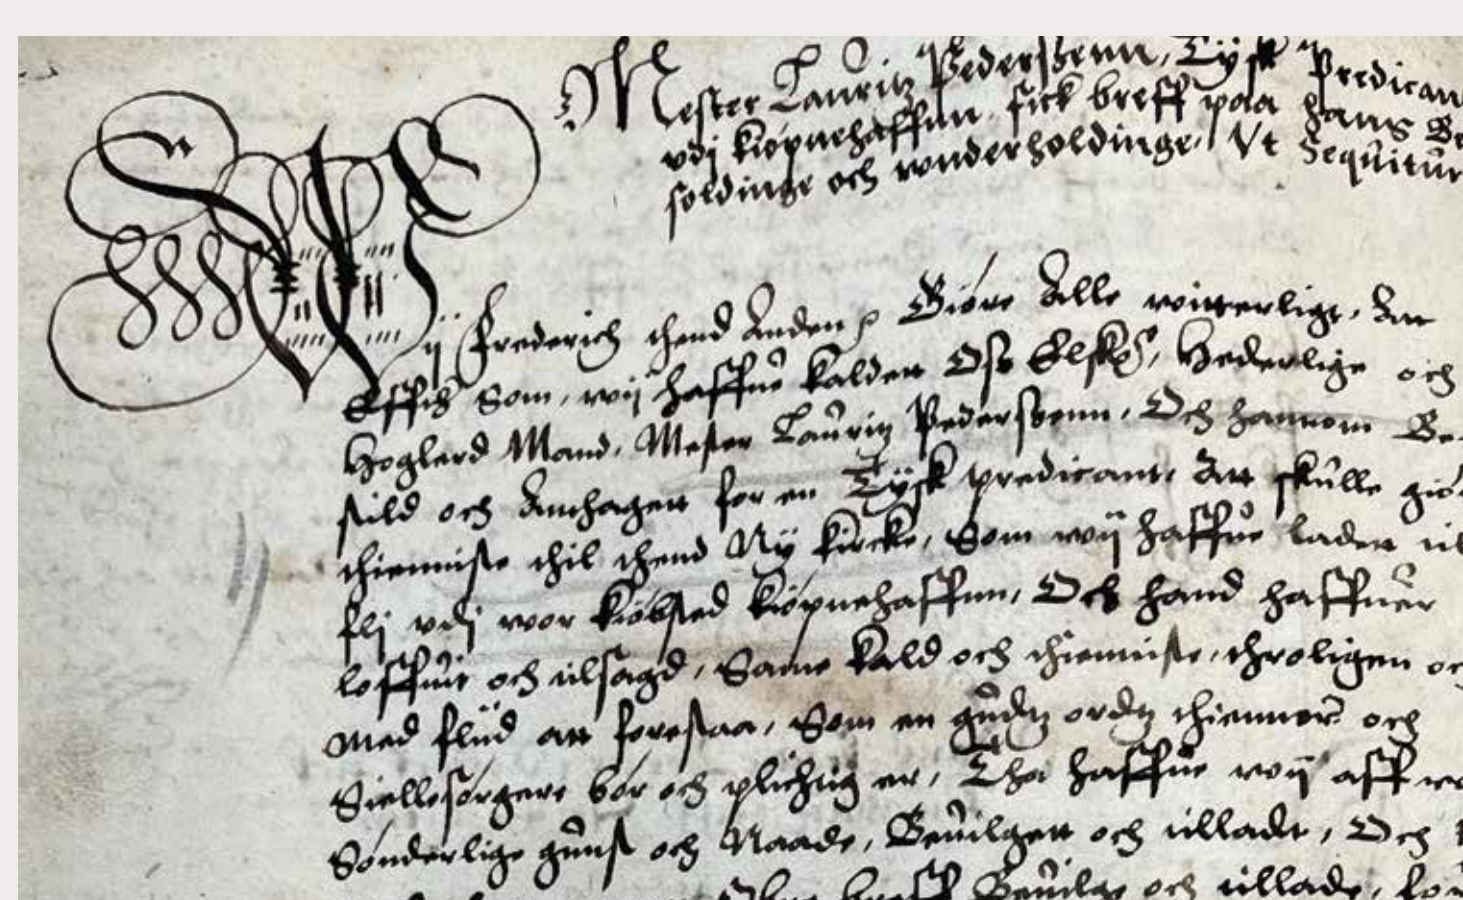 Mester Lauritz Pederssenn, Tÿsk Predican
vdj kiøpnehaffnn, fick breff paa hans Be
soldinge och vnnderholdinge, Vt Sequitur
Wij Frederich thend Anden Giøre Alle witterligt, Att
Effther Som, wij haffue kaldett Oss Elskelig, Hederlige och
Høglerd Mand, Mester Lauritz Pederssenn, Och hannom Be
stild och Anthagett for en Tÿsk predicant, Att skulle giø
thienniste thil thend Nÿ kircke, Som wij haffue ladet
vdj wor kiøbsted kiøpnehaffnn, Och hand haffuer
loffuit och tilsagd, Same kald och thienniste, throligen och
Med fliid att forestaa, Som en gudtz ordtz thiennere och
Siellesørgere bør och plichtig er, Tha haffue wij aff
Sønderlige gunst och Naade, Beuilgett och tilladt, Och
breff Beuilge och tillade,